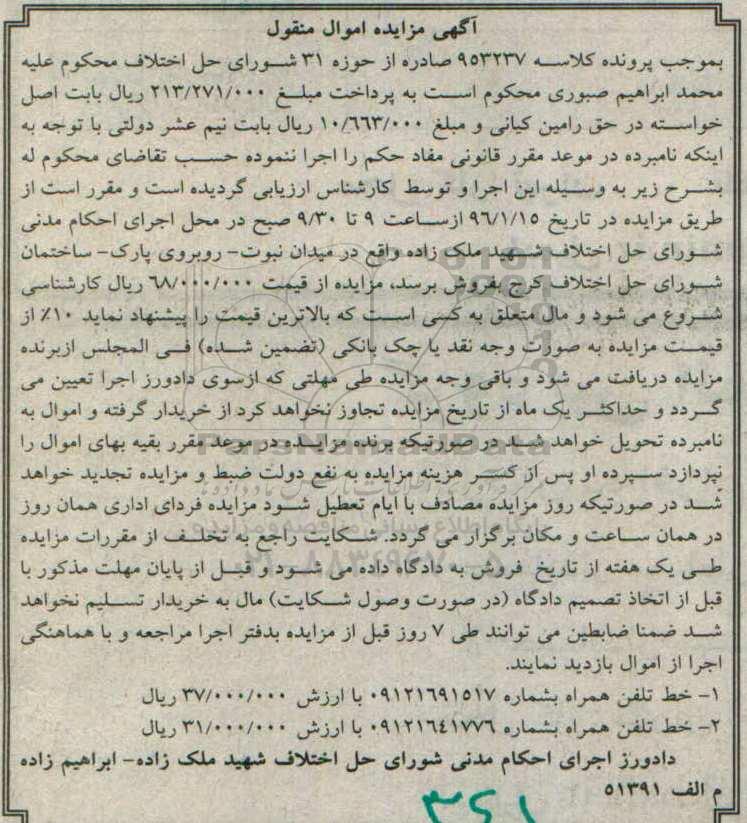 آگهی مزایده اموال منقول
بموجب پرونده کلاسه ۹۵۳۲۳۷ صادره از حوزه ۳۱ شورای حل اختلاف محکوم علیه
محمد ابراهیم صبوری محکوم است به پرداخت مبلغ ۲۱۳/۲۷۱/۰۰۰ ریال بابت اصل
خواسته در حق رامین کیانی و مبلغ ۱۰/۶۶۳/۰۰۰ ریال بابت نیم عشر دولتی با توجه به
اینکه نامبرده در موعد مقرر قانونی مفاد حکم را اجرا ننموده حسب تقاضای محکوم له
بشرح زیر به وسیله این اجرا و توسط کارشناس ارزیابی گردیده است و مقرر است از
طریق مزایده در تاریخ ۹۶/۱/۱۵ ازساعت ۹ تا ۹/۳۰ صبح در محل اجرای احکام مدنی
شورای حل اختلاف شهید ملک زاده واقع در میدان نبوت- روبروی پارک- ساختمان
شورای حل اختلاف کرج بفروش برسد، مزایده از قیمت ۶۸/۰۰۰/۰۰۰ ریال کارشناسی
شروع می شود و مال متعلق به کسی است که بالاترین قیمت را پیشنهاد نماید ۱۰٪ از
قیمت مزایده به صورت وجه نقد یا چک بانکی (تضمین شده) فی المجلس ازبرنده
مزایده دریافت می شود و باقی وجه مزایده طی مهلتی که ازسوی دادورز اجرا تعیین می
گردد و حداکثر یک ماه از تاریخ مزایده تجاوز نخواهد کرد از خریدار گرفته و اموال به
نامبرده تحویل خواهد شد در صورتیکه برنده مزایده در موعد مقرر بقیه بهای اموال را
نپردازد سپرده او پس از کسر هزینه مزایده به نفع دولت ضبط و مزایده تجدید خواهد
شد در صورتیکه روز مزایده مصادف با ایام تعطیل شود مزایده فردای اداری همان روز
در همان ساعت و مکان برگزار می گردد. شکایت راجع به تخلف از مقررات مزایده
طی یک هفته از تاریخ فروش به دادگاه داده می شود و قبل از پایان مهلت مذکور با
قبل از اتخاذ تصمیم دادگاه (در صورت وصول شکایت) مال به خریدار تسلیم نخواهد
شد ضمنا ضابطین می توانند طی ۷ روز قبل از مزایده بدفتر اجرا مراجعه و با هماهنگی
اجرا از اموال بازدید نمایند.
۱- خط تلفن همراه بشماره ۰۹۱۲۱۶۹۱۵۱۷ با ارزش ۳۷/۰۰۰/۰۰۰ ریال
۲- خط تلفن همراه بشماره ۰۹۱۲۱۶۴۱۷۷۶ با ارزش ۳۱/۰۰۰/۰۰۰ ریال
دادورز اجرای احکام مدنی شورای حل اختلاف شهید ملک زاده- ابراهیم زاده
م الف ۵۱۳۹۱
ParsNamadData
پایگاه اطلاع رسانی مناقصه و مزایده